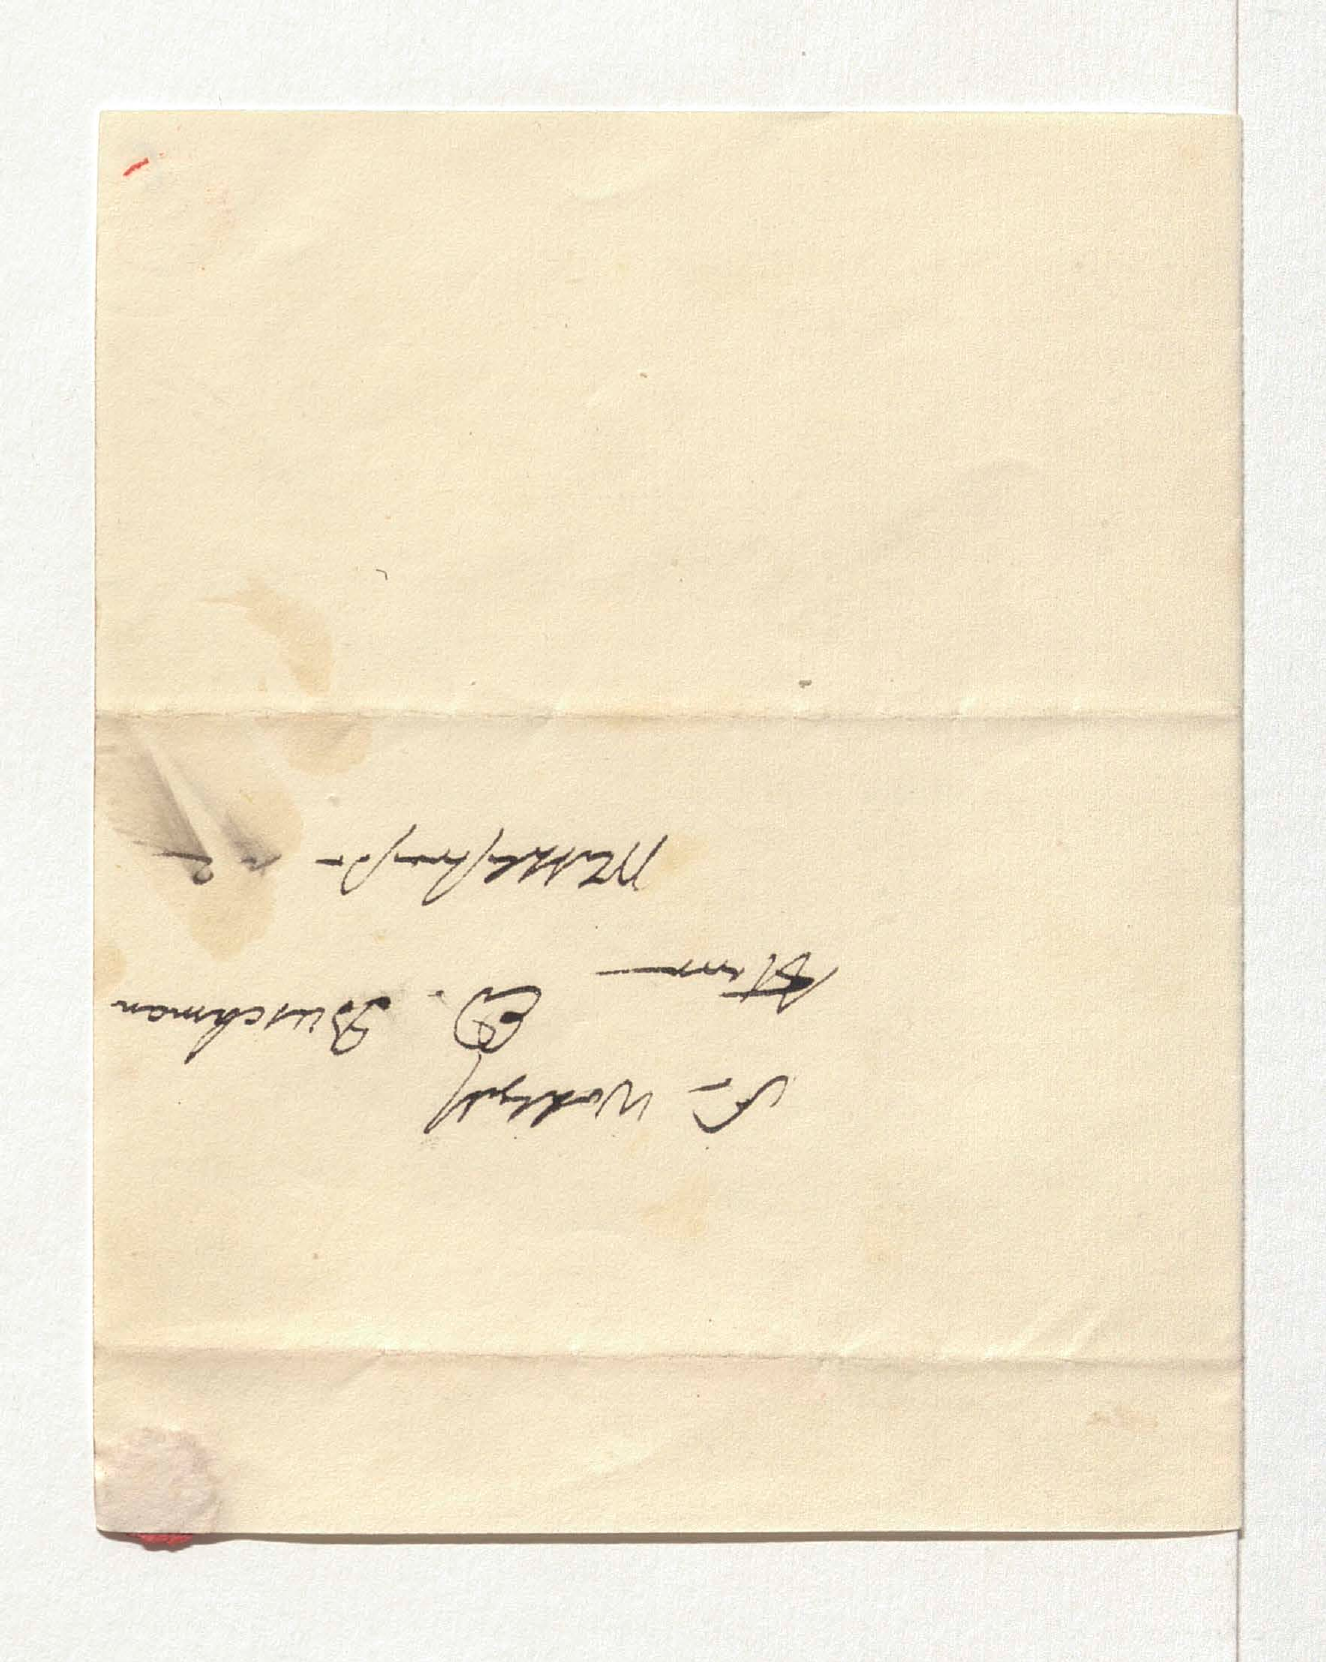 Sr. Wohlgeb
Herrn Buschman
Mittelstraße